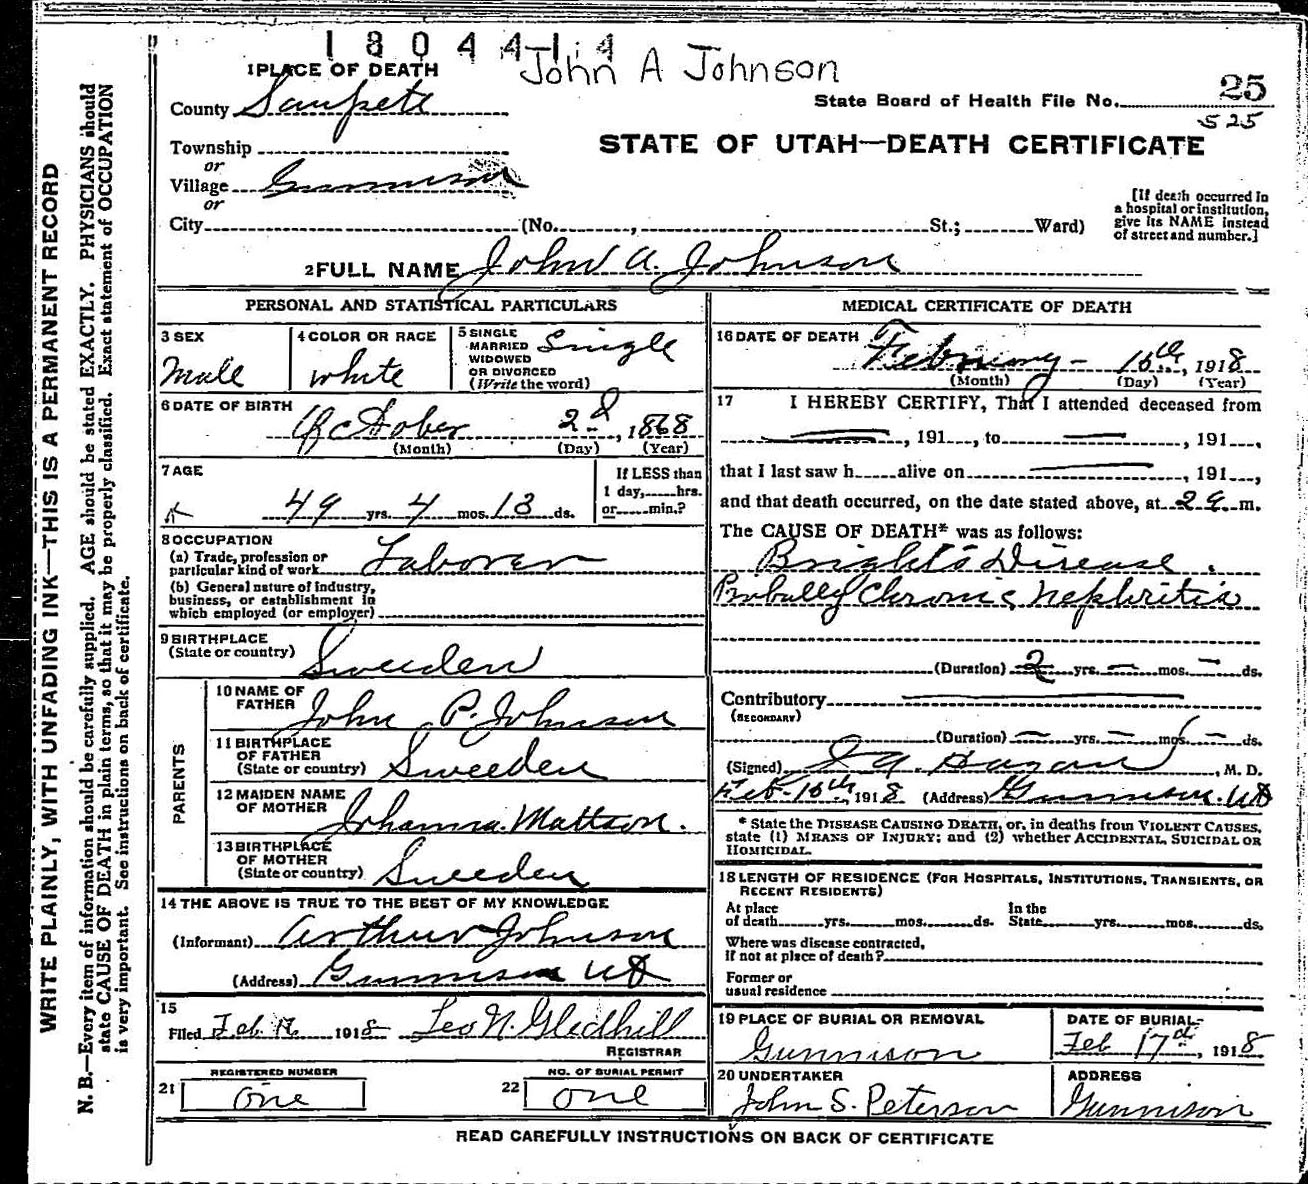 1804414
John A Johnson
1 PLACE OF DEATH
County Sanpete
State Board of Health File No. 25
525
STATE OF UTAH—DEATH CERTIFICATE
Township
or
Village Gunnison
or
City (No. , St.; Ward)
[If death occurred in
a hospital or institution,
give its NAME instead
of street and number.]
2 FULL NAME John A. Johnson
PERSONAL AND STATISTICAL PARTICULARS
3 SEX
Male
4 COLOR OR RACE
white
5 SINGLE
MARRIED
WIDOWED
OR DIVORCED
(Write the word)
Single
6 DATE OF BIRTH
October 2d, 1868
(Month) (Day) (Year)
7 AGE
49 yrs. 4 mos. 13 ds.
If LESS than
1 day, hrs.
or min.?
8 OCCUPATION
(a) Trade, profession or
particular kind of work Laborer
(b) General nature of industry,
business, or establishment in
which employed (or employer)
9 BIRTHPLACE
(State or country) Sweeden
PARENTS
10 NAME OF
FATHER John P. Johnson
11 BIRTHPLACE
OF FATHER
(State or country) Sweeden
12 MAIDEN NAME
OF MOTHER Johanna Mattson.
13 BIRTHPLACE
OF MOTHER
(State or country) Sweeden
14 THE ABOVE IS TRUE TO THE BEST OF MY KNOWLEDGE
(Informant) Arthur Johnson
(Address) Gunnison Ut
15
Filed Feb. , 1918 Leo N. Gledhill
REGISTRAR
21 REGISTERED NUMBER
One
22 NO. OF BURIAL PERMIT
One
MEDICAL CERTIFICATE OF DEATH
16 DATE OF DEATH
February – 15th, 1918
(Month) (Day) (Year)
17 I HEREBY CERTIFY, That I attended deceased from
, 191 , to , 191 ,
that I last saw h alive on , 191 ,
and that death occurred, on the date stated above, at 2 a. m.
The CAUSE OF DEATH* was as follows:
Bright's Disease.
Probally Chronic Nephritis
(Duration) 2 yrs. — mos. — ds.
Contributory
(SECONDARY)
(Duration) — yrs. — mos. — ds.
(Signed) Hagan, M. D.
Feb-15th, 1918 (Address) Gunnison. Ut
* State the DISEASE CAUSING DEATH, or, in deaths from VIOLENT CAUSES,
state (1) MEANS OF INJURY; and (2) whether ACCIDENTAL, SUICIDAL OR
HOMICIDAL.
18 LENGTH OF RESIDENCE (FOR HOSPITALS, INSTITUTIONS, TRANSIENTS, OR
RECENT RESIDENTS)
At place
of death yrs. mos. ds.
In the
State yrs. mos. ds.
Where was disease contracted,
if not at place of death?
Former or
usual residence
19 PLACE OF BURIAL OR REMOVAL
Gunnison
DATE OF BURIAL
Feb 17th, 1918
20 UNDERTAKER
John S. Peterson
ADDRESS
Gunnison
READ CAREFULLY INSTRUCTIONS ON BACK OF CERTIFICATE
WRITE PLAINLY, WITH UNFADING INK—THIS IS A PERMANENT RECORD
N. B.—Every item of information should be carefully supplied. AGE should be stated EXACTLY. PHYSICIANS should
state CAUSE OF DEATH in plain terms, so that it may be properly classified. Exact statement of OCCUPATION
is very important. See instructions on back of certificate.